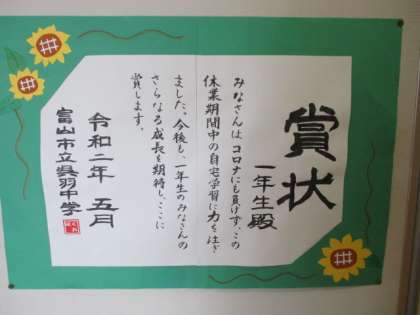 賞状
一年生殿
みなさんは、コロナにも負けず、この
休業期間中の自宅学習に力を注ぎ
ました。今後も、一年生のみなさんの
さらなる成長を期待し、ここに
賞します。
令和二年 五月
富山市立呉羽中学